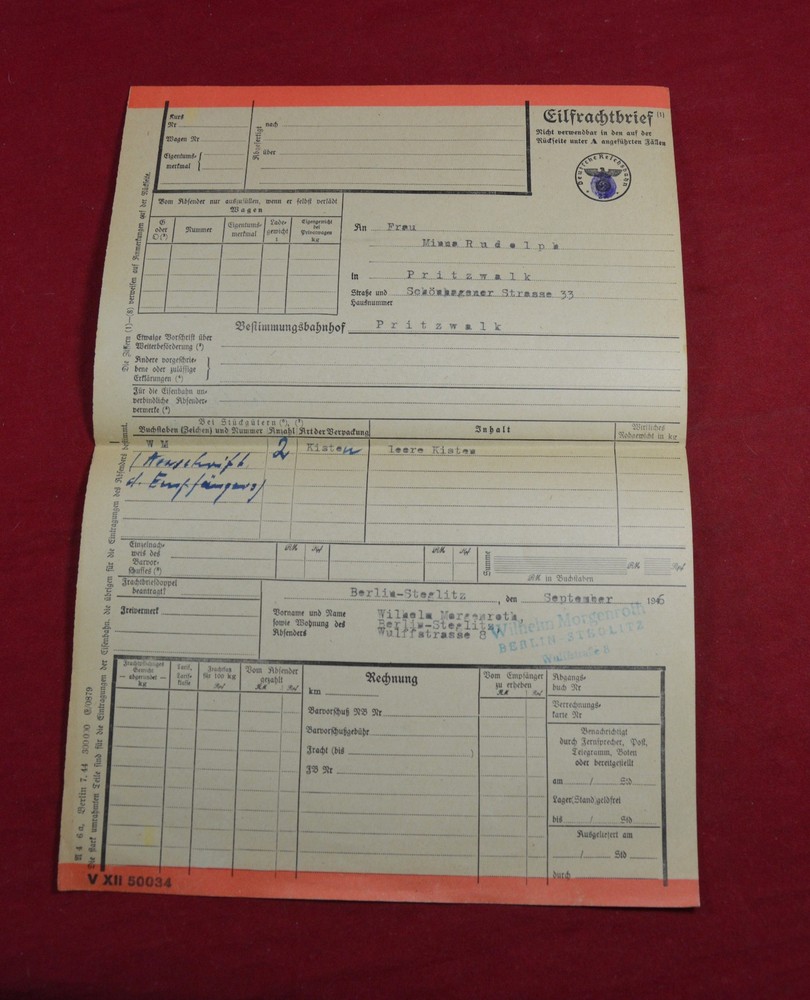 Kurs
Nr
Wagen Nr
Eigentums-
merkmal
Abgefertigt
nach
über
Eilfrachtbrief (1)
Nicht verwendbar in den auf der
Rückseite unter A angeführten Fällen
Deutsche Reichsbahn
Vom Absender nur auszufüllen, wenn er selbst verlädt
Wagen
G
oder
O (4)
Nummer
Eigentums-
merkmal
Lade-
gewicht
t
Eigengewicht
bei
Privatwagen
kg
An Frau
Minna Rudolph
in Pritzwalk
Straße und
Hausnummer
Schönhagener Strasse 33
Bestimmungsbahnhof Pritzwalk
Etwaige Vorschrift über
Weiterbeförderung (4)
Andere vorgeschrie-
bene oder zulässige
Erklärungen (4)
Für die Eisenbahn un-
verbindliche Absender-
vermerke (4)
Bei Stückgütern
Buchstaben (Zeichen) und Nummer
Anzahl
Art der Verpackung
Inhalt
Wirkliches
Rohgewicht in kg
W M
2
Kisten
leere Kisten
(Anschrift
d. Empfängers)
Einzelnach-
weis des
Barvor-
schusses (4)
RM
Rpf
RM
Rpf
Summe
RM
Rpf
RM in Buchstaben
Frachtbriefdoppel
beantragt!
Freivermerk
Berlin-Steglitz, den September 1946
Vorname und Name
sowie Wohnung des
Absenders
Wilhelm Morgenroth,
Berlin-Steglitz,
Wulffstrasse 8
Wilhelm Morgenroth
BERLIN-STEGLITZ
Wulffstraße 8
Frachtpflichtiges
Gewicht
— abgerundet —
kg
Tarif,
Tarif-
klasse
Frachtsatz
für 100 kg
Rpf
Vom Absender
gezahlt
RM
Rpf
Rechnung
km
Barvorschuß NB Nr
Barvorschußgebühr
Fracht (bis )
FB Nr
Vom Empfänger
zu erheben
RM
Rpf
Abgangs-
buch Nr
Verrechnungs-
karte Nr
Benachrichtigt
durch Fernsprecher, Post,
Telegramm, Boten
oder bereitgestellt
am / Std
Lager(Stand)geldfrei
bis / Std
Ausgeliefert am
/ Std
durch
Die Ziffern (1)—(8) verweisen auf Anmerkungen auf der Rückseite.
Die stark umrahmten Teile sind für die Eintragungen der Eisenbahn, die übrigen für die Eintragungen des Absenders bestimmt.
Berlin 7. 44 500 000 E/0879
V XII 50034